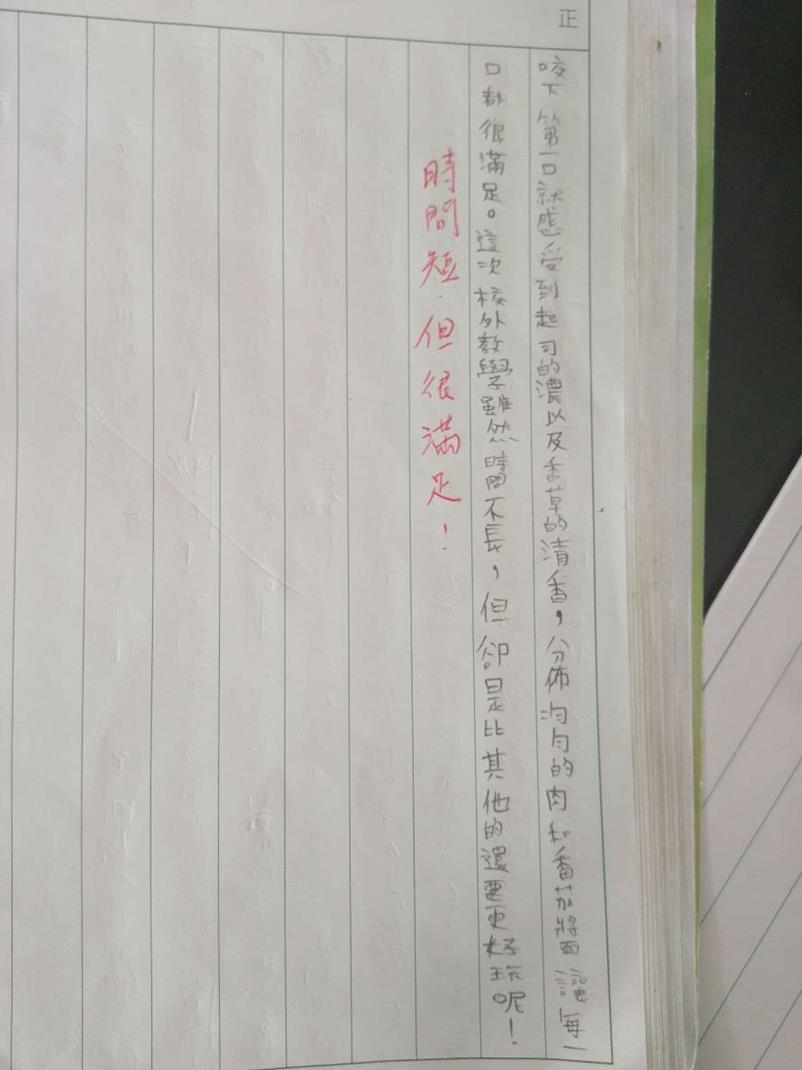 正
咬下第一口就感受到起司的濃以及香草的清香，分佈均勻的肉和番茄將面讓每一
口都很滿足。這次校外教學雖然時間不長，但卻是比其他的還要更好玩呢！
時間短，但很滿足！